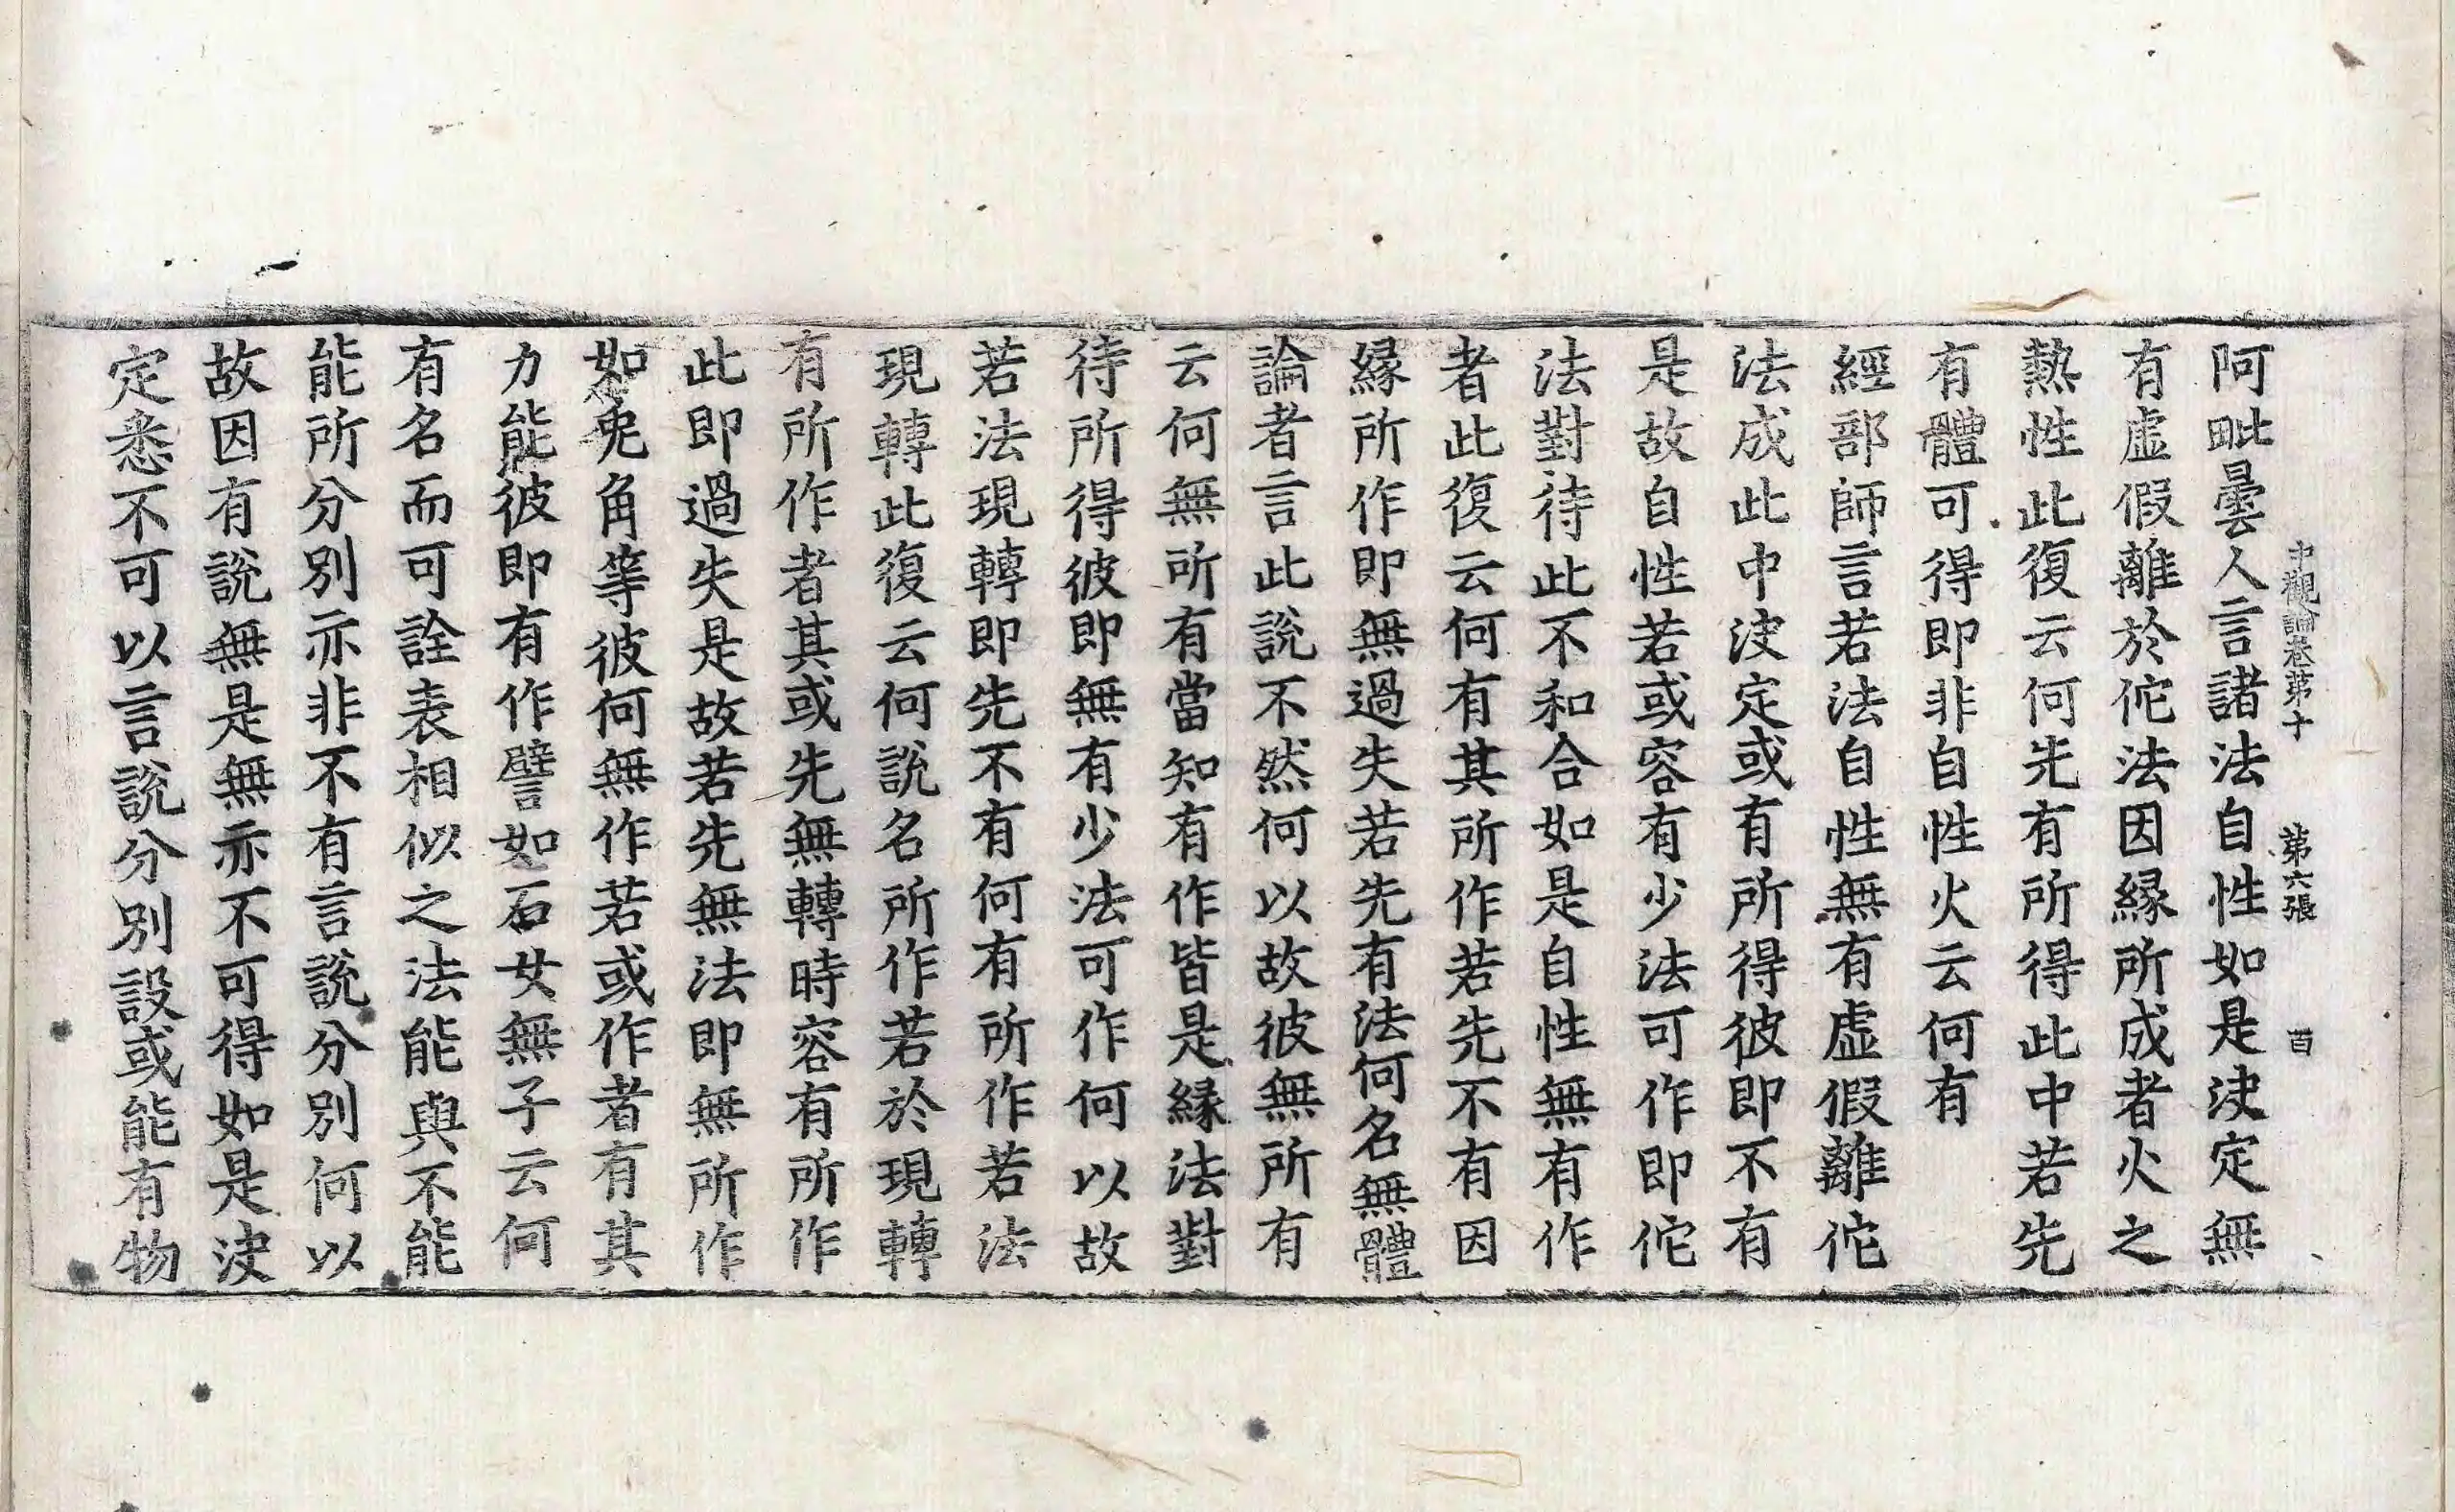 中觀論卷第十 第六張 酉
阿毗曇人言諸法自性如是决定無
有虛假離於佗法因縁所成者火之
熱性此復云何先有所得此中若先
有體可得即非自性火云何有
經部師言若法自性無有虛假離佗
法成此中决定或有所得彼即不有
是故自性若或容有少法可作即佗
法對待此不和合如是自性無有作
者此復云何有其所作若先不有因
縁所作即無過失若先有法何名無體
論者言此說不然何以故彼無所有
云何無所有當知有作皆是縁法對
待所得彼即無有少法可作何以故
若法現轉即先不有何有所作若法
現轉此復云何說名所作若於現轉
有所作者其或先無轉時容有所作
此即過失是故若先無法即無所作
如兎角等彼何無作若或作者有其
力能彼即有作譬如石女無子云何
有名而可詮表相似之法能與不能
能所分別亦非不有言說分別何以
故因有說無是無亦不可得如是决
定悉不可以言說分別設或能有物